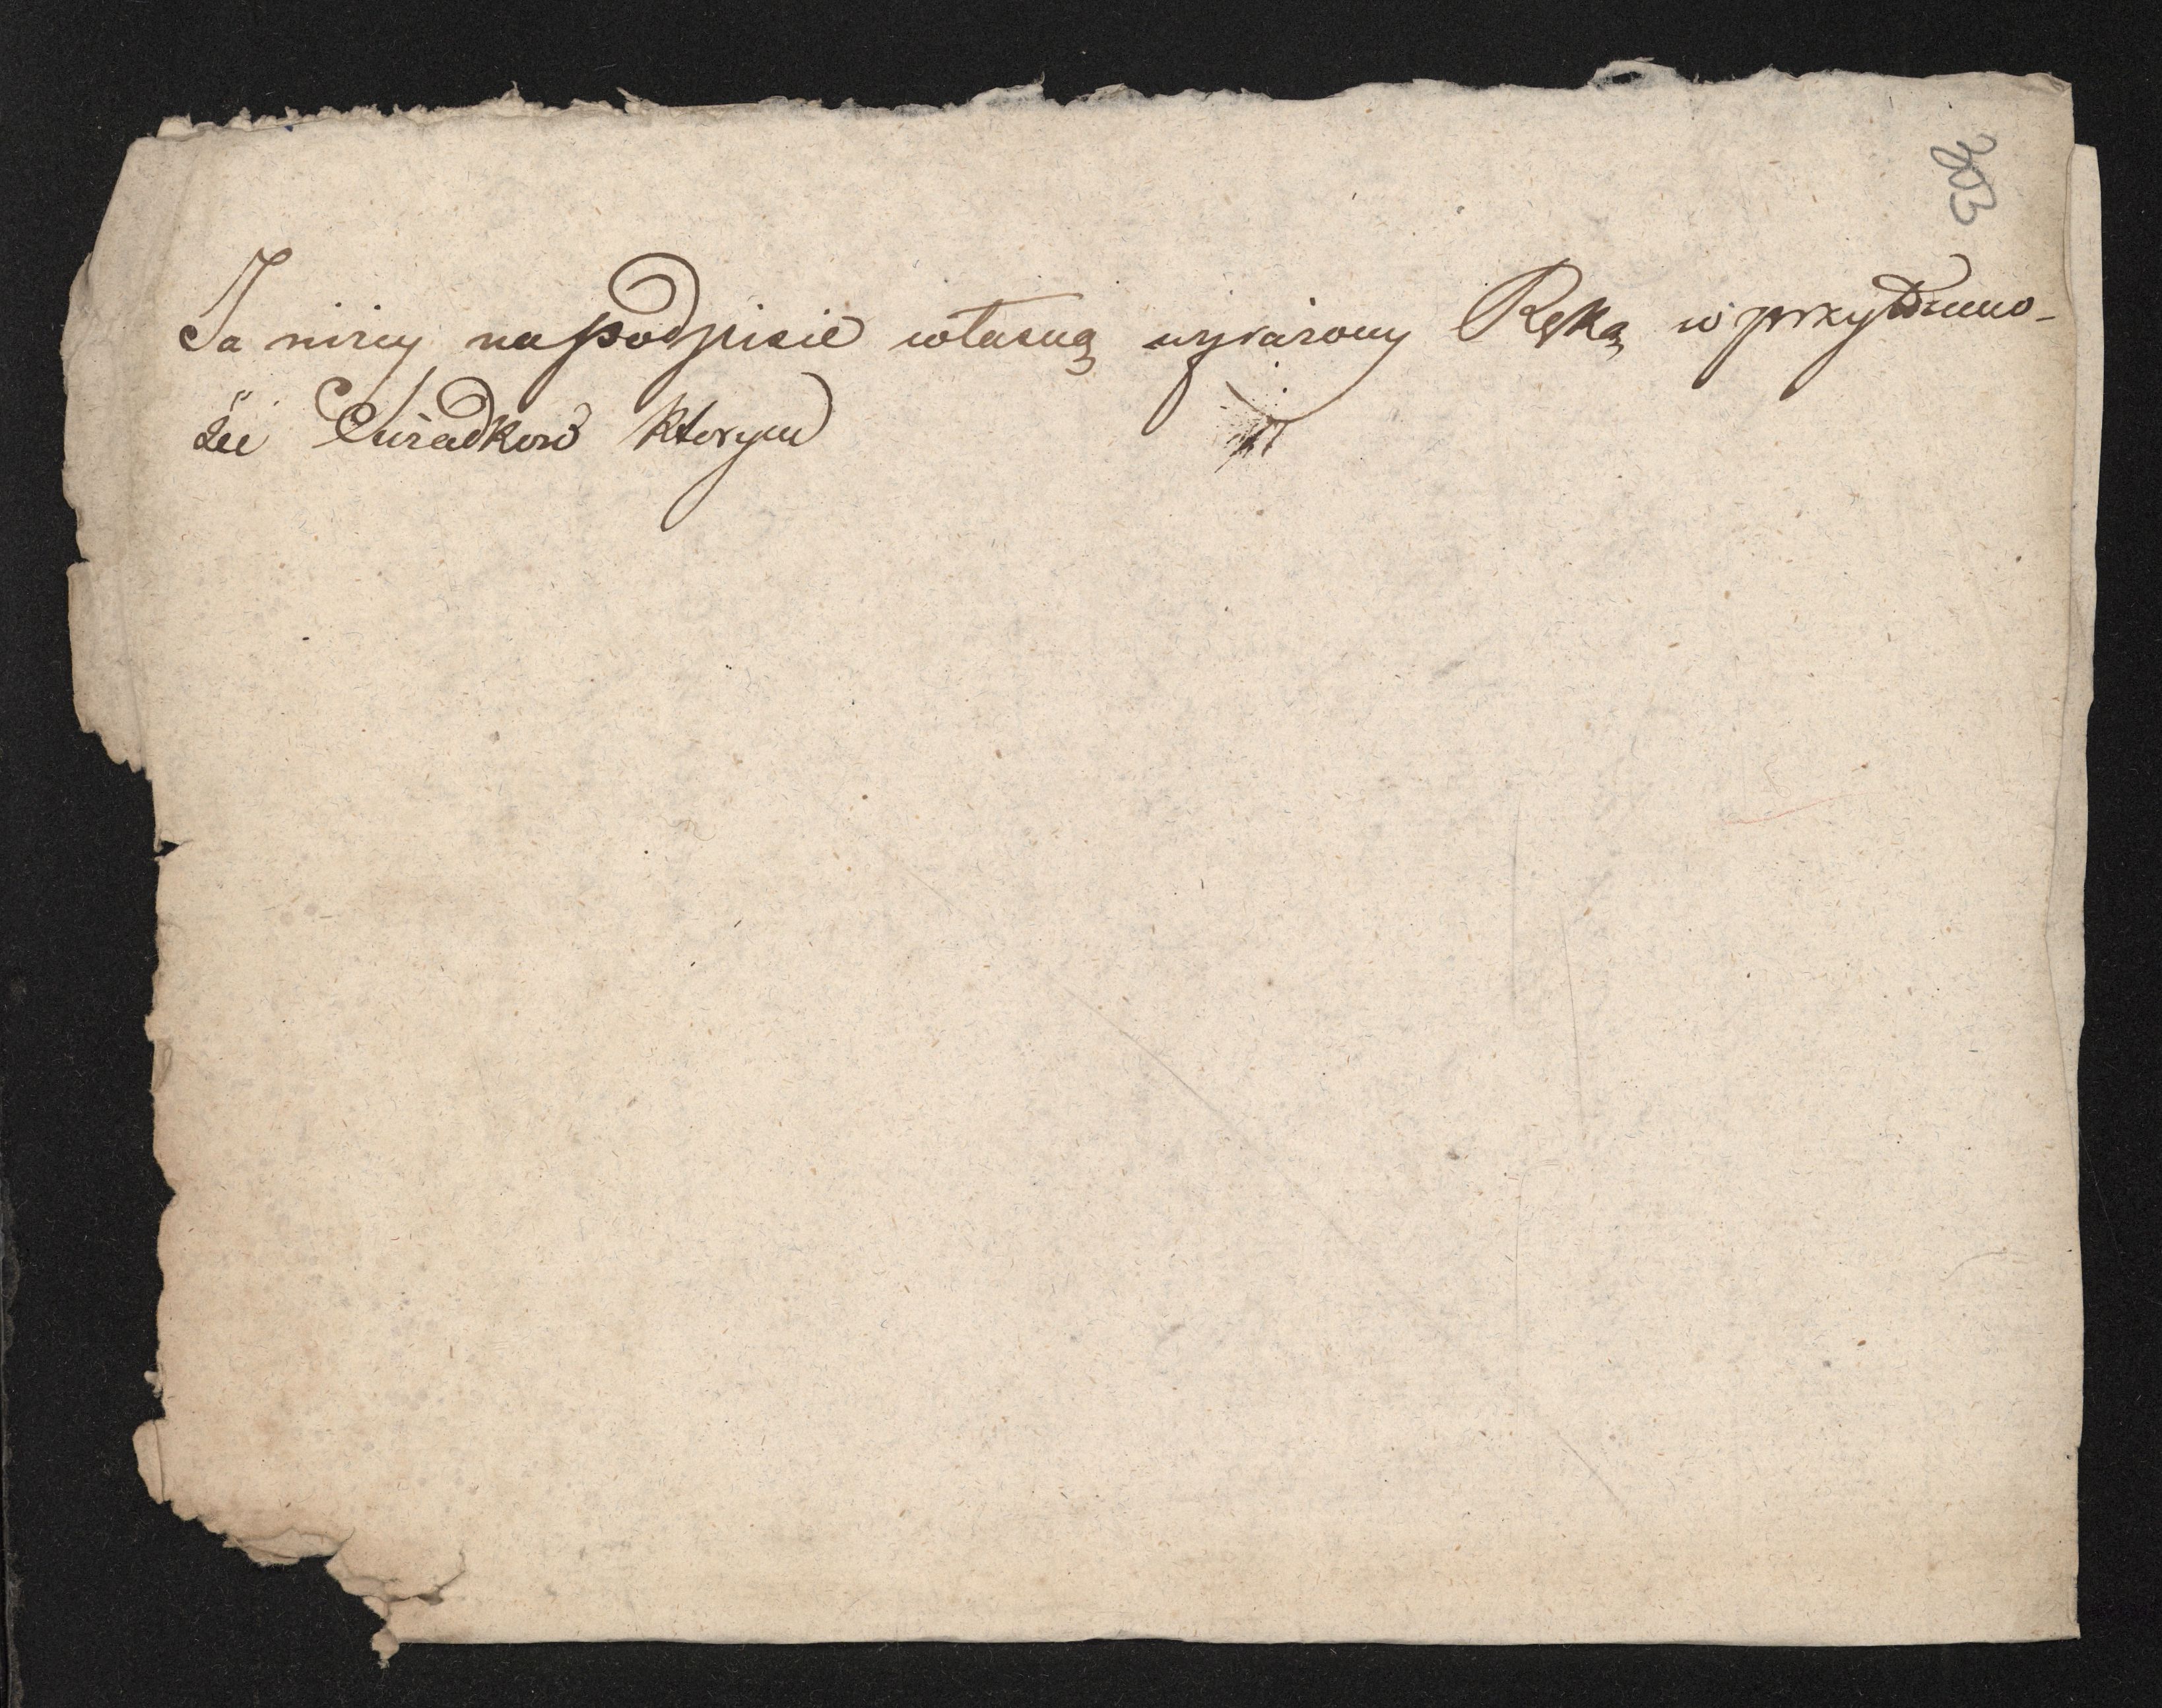 303
Ja niżey na podpisie własną wyrażony Ręką w przytomno-
ści Swiadkow ktorym